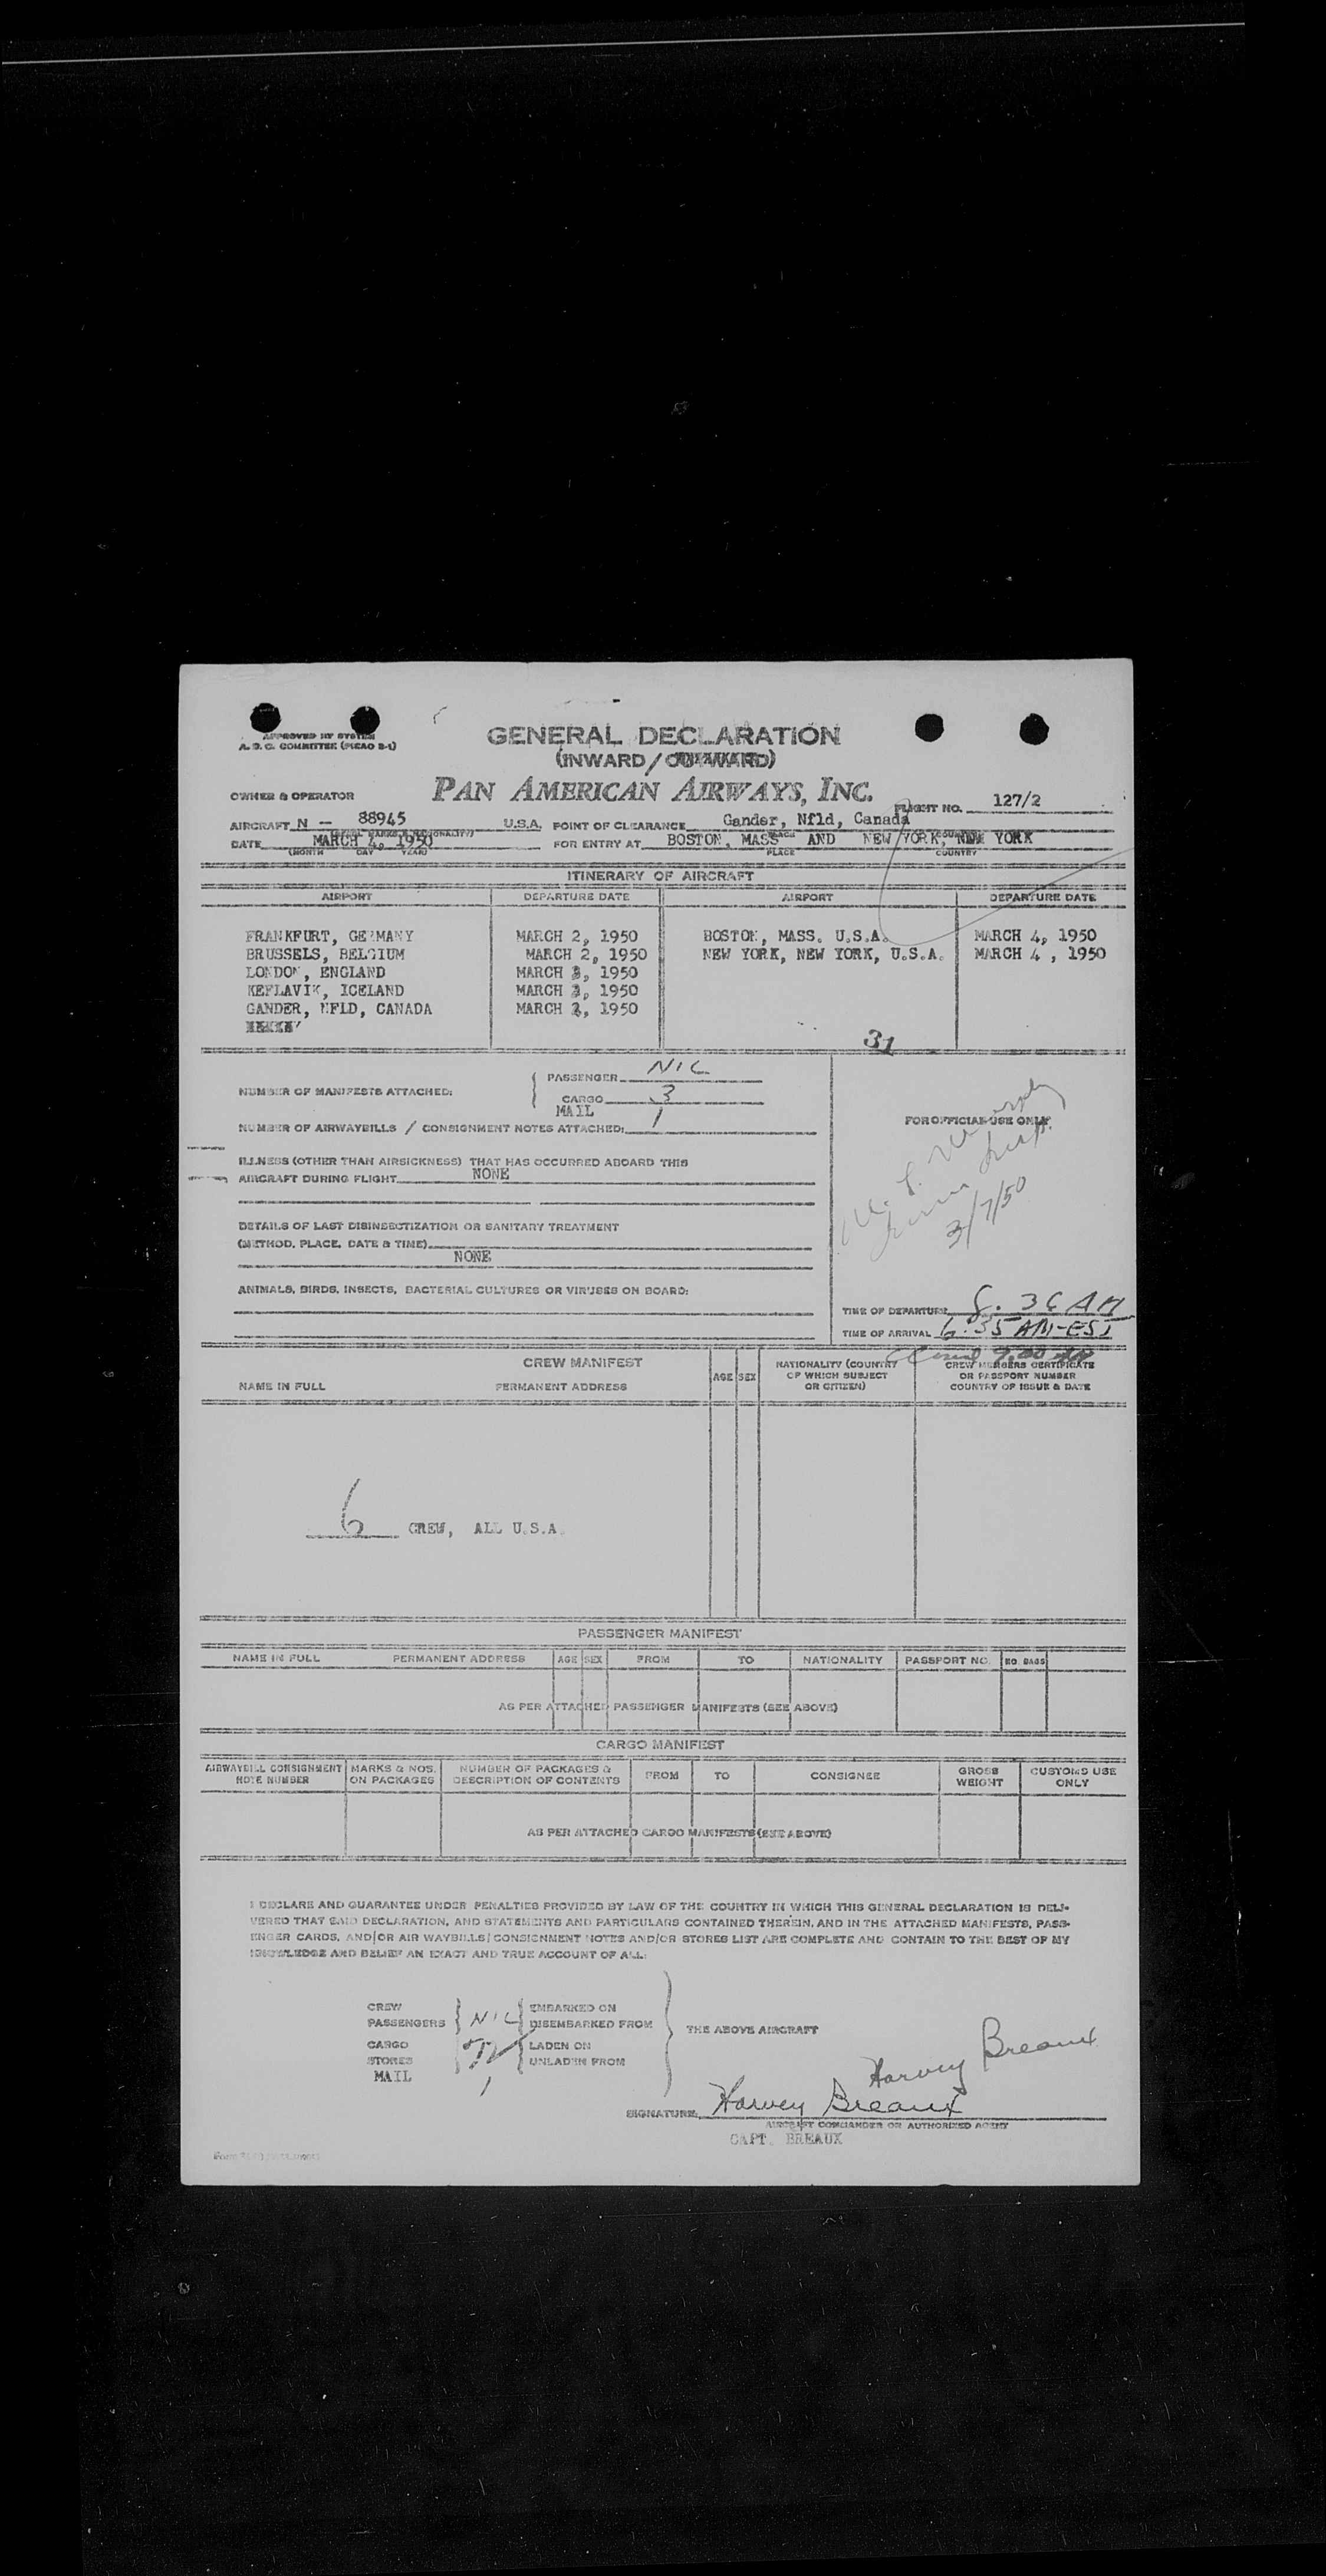 APPROVED BY SYSTEM
A. D. C. COMMITTEE (PICAO B-1)
GENERAL DECLARATION
(INWARD/OUTWARD)
OWNER & OPERATOR PAN AMERICAN AIRWAYS, INC. FLIGHT NO. 127/2
AIRCRAFT N - 88945 U.S.A. POINT OF CLEARANCE Gander, Nfld, Canada
DATE MARCH 4, 1950 FOR ENTRY AT BOSTON, MASS AND NEW YORK, NEW YORK
(MONTH DAY YEAR) PLACE COUNTRY
ITINERARY OF AIRCRAFT
AIRPORT DEPARTURE DATE AIRPORT DEPARTURE DATE
FRANKFURT, GERMANY MARCH 2, 1950 BOSTON, MASS. U.S.A. MARCH 4, 1950
BRUSSELS, BELGIUM MARCH 2, 1950 NEW YORK, NEW YORK, U.S.A. MARCH 4 , 1950
LONDON, ENGLAND MARCH 3, 1950
KEFLAVIK, ICELAND MARCH 3, 1950
GANDER, NFLD, CANADA MARCH 1950
31
NUMBER OF MANIFESTS ATTACHED: PASSENGER NIL
CARGO 3
MAIL 1
FOR OFFICIAL USE ONLY
NUMBER OF AIRWAYBILLS / CONSIGNMENT NOTES ATTACHED:
ILLNESS (OTHER THAN AIRSICKNESS) THAT HAS OCCURRED ABOARD THIS
AIRCRAFT DURING FLIGHT NONE
3/7/50
DETAILS OF LAST DISINSECTIZATION OR SANITARY TREATMENT
(METHOD, PLACE, DATE & TIME)
NONE
ANIMALS, BIRDS, INSECTS, BACTERIAL CULTURES OR VIRUSES ON BOARD:
TIME OF DEPARTURE 8.36 AM
TIME OF ARRIVAL 6:35 AM-EST
CREW MANIFEST
NAME IN FULL PERMANENT ADDRESS AGE SEX NATIONALITY (COUNTRY OF WHICH SUBJECT OR CITIZEN) CREW MEMBERS CERTIFICATE OR PASSPORT NUMBER COUNTRY OF ISSUE & DATE
6 CREW, ALL U.S.A.
PASSENGER MANIFEST
NAME IN FULL PERMANENT ADDRESS AGE SEX FROM TO NATIONALITY PASSPORT NO. NO. BAGS
AS PER ATTACHED PASSENGER MANIFESTS (SEE ABOVE)
CARGO MANIFEST
AIRWAYBILL CONSIGNMENT NOTE NUMBER MARKS & NOS. ON PACKAGES NUMBER OF PACKAGES & DESCRIPTION OF CONTENTS FROM TO CONSIGNEE GROSS WEIGHT CUSTOMS USE ONLY
AS PER ATTACHED CARGO MANIFESTS (SEE ABOVE)
I DECLARE AND GUARANTEE UNDER PENALTIES PROVIDED BY LAW OF THE COUNTRY IN WHICH THIS GENERAL DECLARATION IS DELI-
VERED THAT SAID DECLARATION, AND STATEMENTS AND PARTICULARS CONTAINED THEREIN, AND IN THE ATTACHED MANIFESTS, PASS-
ENGER CARDS, AND/OR AIR WAYBILLS/CONSIGNMENT NOTES AND/OR STORES LIST ARE COMPLETE AND CONTAIN TO THE BEST OF MY
KNOWLEDGE AND BELIEF AN EXACT AND TRUE ACCOUNT OF ALL:
CREW EMBARKED ON
PASSENGERS NIL DISEMBARKED FROM THE ABOVE AIRCRAFT
CARGO LADEN ON
STORES UNLADEN FROM
MAIL 1
Harvey Breaux
SIGNATURE: Harvey Breaux
AIRCRAFT COMMANDER OR AUTHORIZED AGENT
CAPT. BREAUX